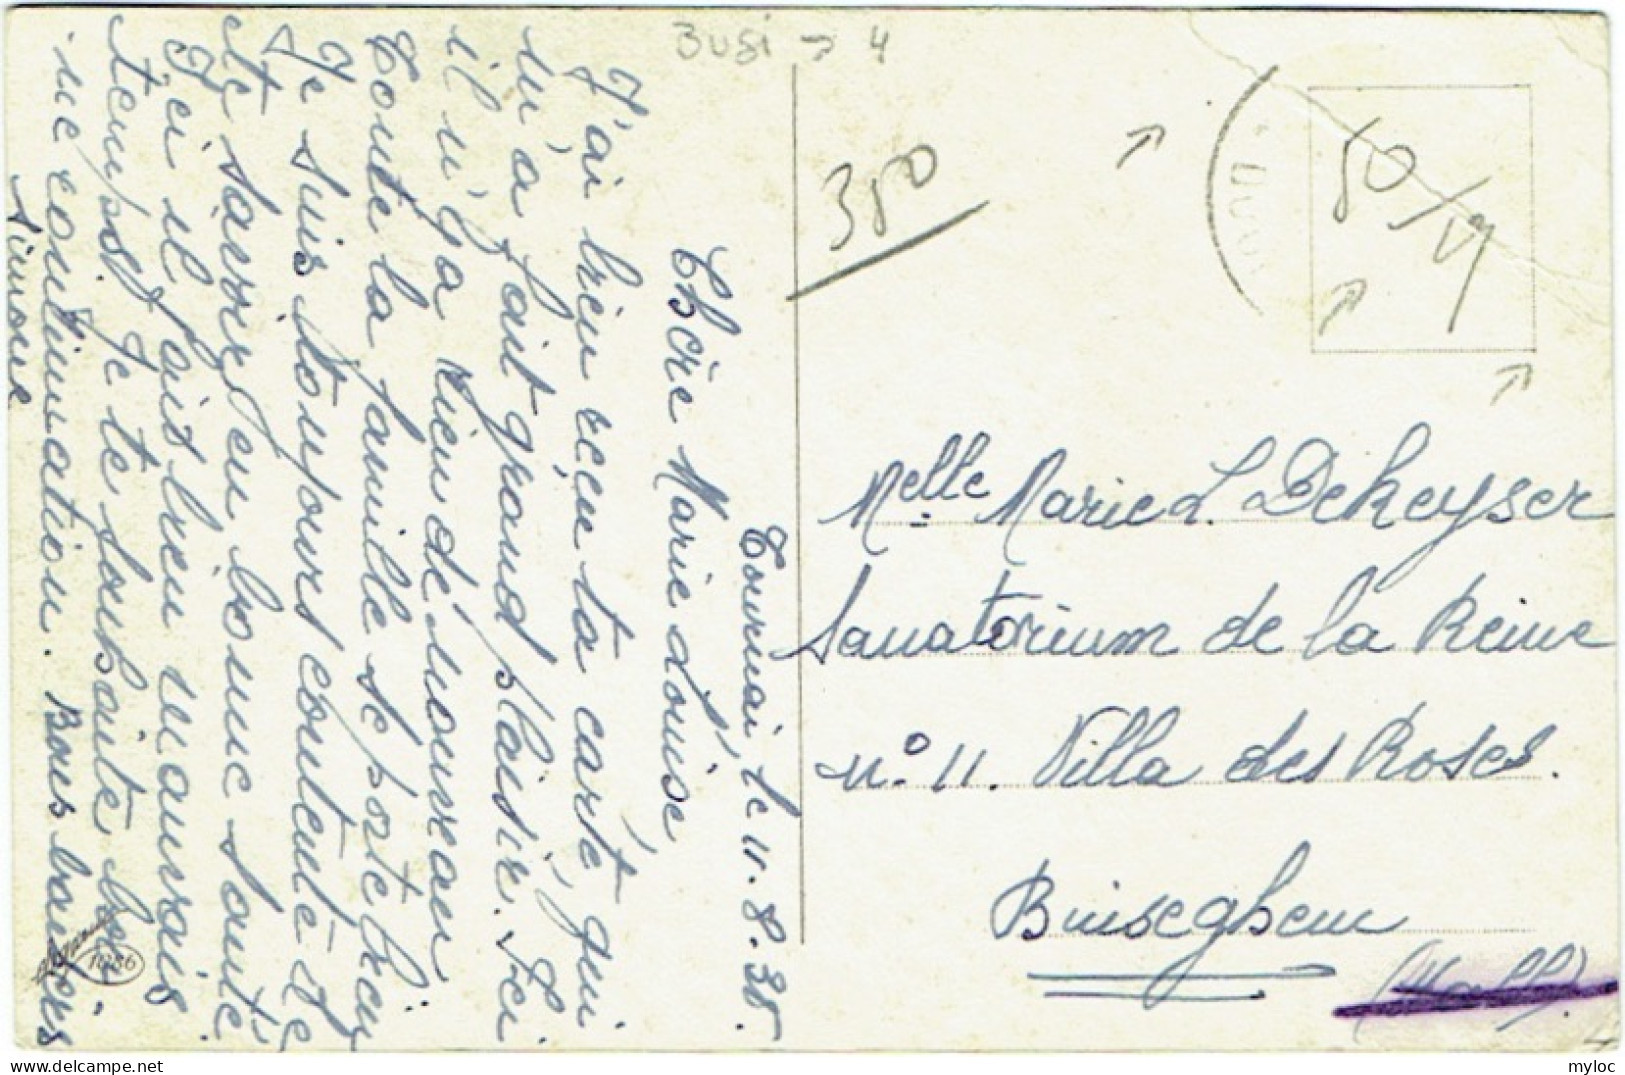 Busi → 4
350
50/VI
Tournai, le 11.8.38.
Chère Marie Louise
J'ai bien reçu ta carte, qui
m'a fait grand plaisir. Ici
il n'y a rien de nouveau
toute la famille se porte bien
Je suis toujours contente de
te savoir en bonne santé
Ici il fait bien mauvais
temps. Je te souhaite bon
ne continuation. Bons baisers
Simone
1086
Melle Marie L. Dekeyser
Sanatorium de la Reine
n° 11. Villa des Roses.
Buiseghem
(Hall)
myloc